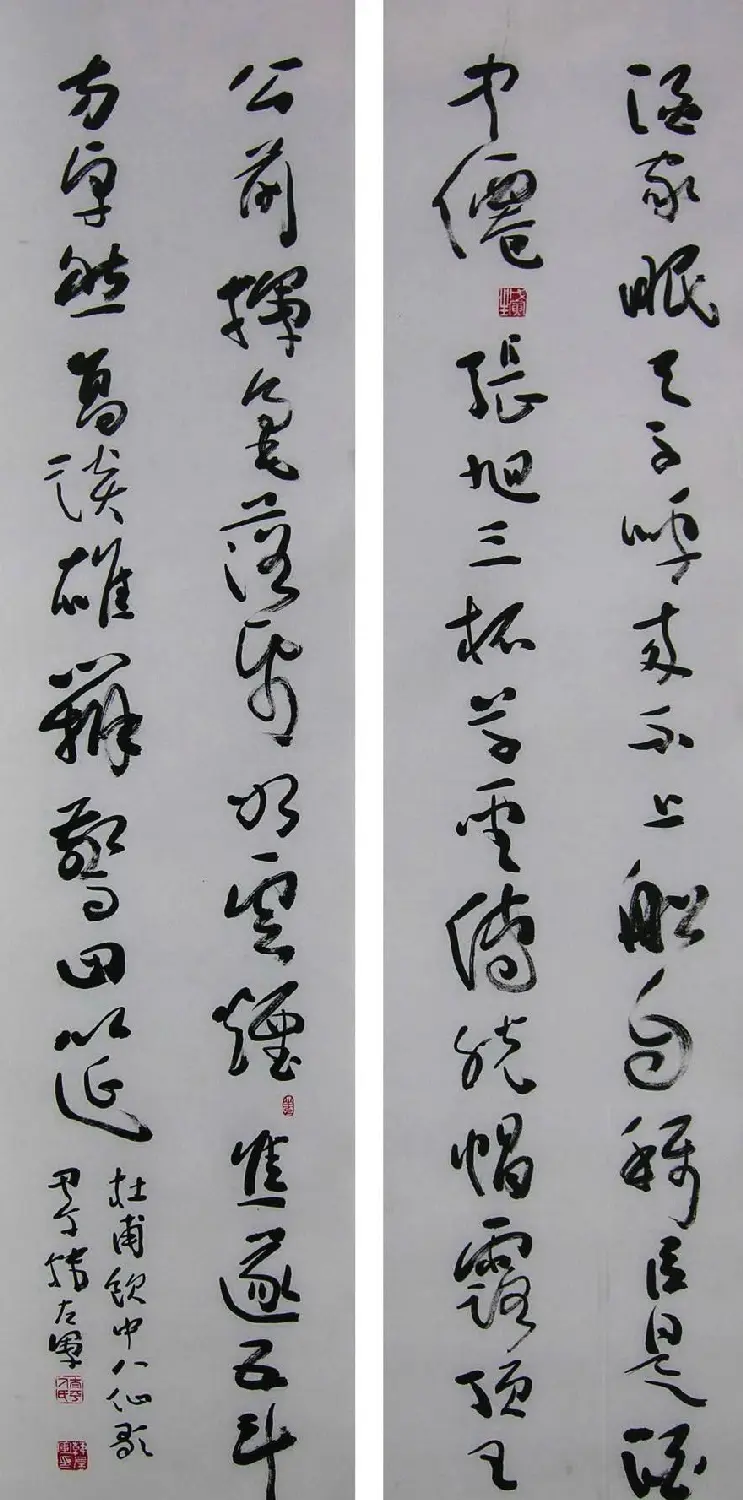 酒家眠天子呼來不上船自稱臣是酒
中僊張旭三杯草聖傳脫帽露頂王
公前揮毫落紙如雲煙焦遂五斗
方卓然高談雄辯驚四筵
杜甫飲中八仙歌
左軍